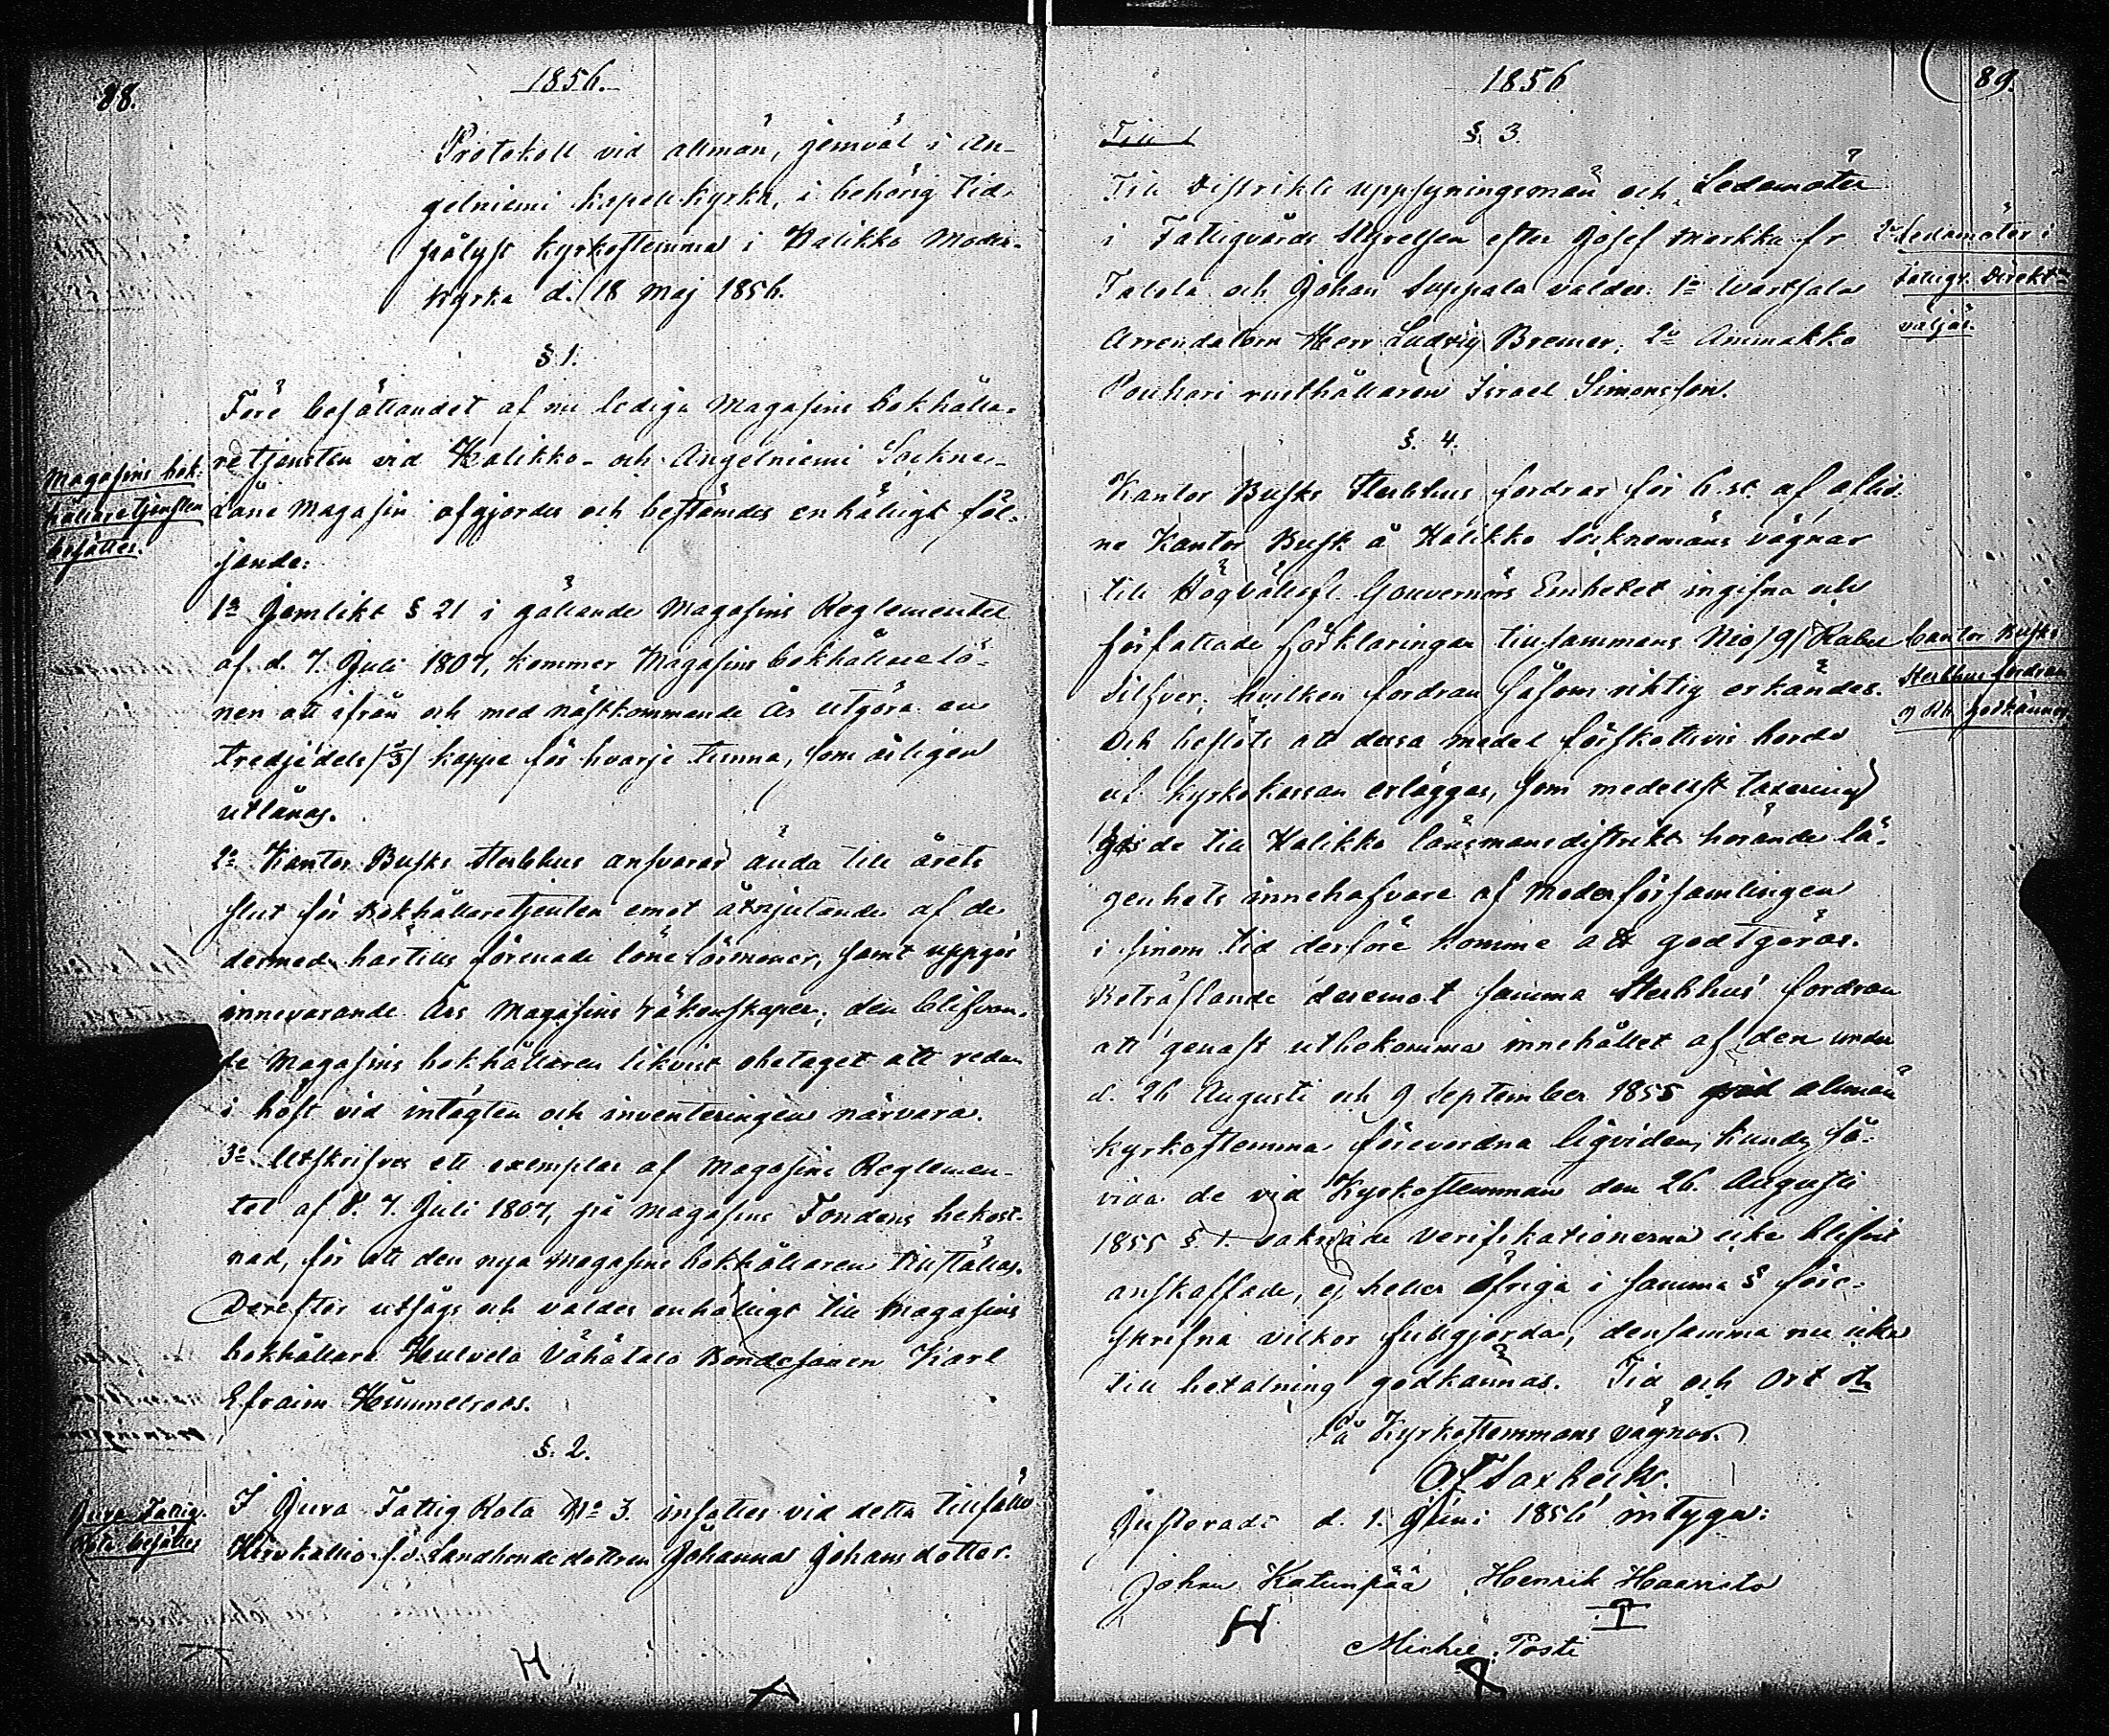 88.
1856.
Protokoll vid allmän, jemväl i An-
gelniemi kapellkyrka, i behörig tid
pålyst kyrkostemma i Halikko Moder-
kyrka d. 18 Maj 1856.
§ 1.
Före besättandet af nu lediga Magasins bokhålla-
retjensten vid Halikko- och Angelniemi Sockne-
Låne Magasin afgjordes och bestämdes enhälligt föl-
jande:
Magasins bok-
hållaretjensten
besättes.
1o Jemlikt § 21 i gällande Magasins Reglementet
af d. 7. Juli 1807, kommer Magasins bokhållare lö-
nen att ifrån och med nästkommande År utgöra en
tredjedels /⅓/ kappe för hvarje tunna, som årligen
utlånas.
2o Kantor Busks Sterbhus ansvarar ända till årets
slut för Bokhållaretjensten emot åtnjutande af de
dermed härtills förenade löne förmoner, samt uppgör
innevarande Års Magasins räkenskaper; den blifvan-
de Magasins bokhållaren likvist obetaget att redan
i höst vid intägten och inventeringen närvara.
3o Utskrifves ett exemplar af Magasins Reglemen-
tet af d. 7. Juli 1807, på Magasins Fondens bekost-
nad, för att den nya Magasins bokhållaren tillställas.
Derefter utsågs och valdes enhälligt till Magasins
bokhållare Hulvela Vähätalo Bondesonen Karl
Efraim Hummelroos.
§. 2.
I Juva Fattig Rota No 3. insattes vid detta tillfälle
Hirvikallio f.d. Landbonde dottren Johanna Johansdotter.
Juva Fattig-
Rota besättes
1856
89.
§. 3.
Till Distrikts uppsyningsmän och Ledamöter
i Fattigvårds Styrelsen efter Josef Markka fr
Talola och Johan Suppala valdes: 1o Wartsala
Arrendatorn Herr Ludvig Bremer; 2o Ammakko
Pouhari rusthållaren Israel Simonsson.
2e Ledamöter i
Fattigv. Direktn
väljas.
§. 4.
Kantor Busks Sterbhus fordrar för 6. st. af aflid-
ne Kantor Busk å Halikko Socknemäns vägnar
till Högvällofl. Gouvernörs Embetet ingifna och
författade förklaringar tillsammans Nio /9/ Rubel
Silfver; hvilken fordran såsom riktig erkändes.
Och beslöts att dessa medel förskottsvis borde
ut kyrkokassan erläggas, som medelst taxering
på de till Halikko länsmansdistrikt hörande lä-
genhets innehafvare af Moderförsamlingen
i sinom tid derföre komme att godtgöras.
Beträffande deremot samma Sterbhus' fordran
att genast utbekomma innehållet af den under
d. 26 Augusti och 9 September 1855 vid allmän
kyrkostemma förevordna liqviden, kunde, så-
vida de vid Kyrkostemman den 26. Augusti
1855 § 1. saknade verifikationerna icke blifvit
anskaffade, ej heller öfriga i samma § före-
skrifna vilkor fullgjorda, densamma nu icke
till betalning godkännas. Tid och Ort
Cantor Busks
Sterbhus fordran
9 Rb. godkännes.
På Kyrkostemmans vägnar.
Justerade d. 1. Juni 1856 intyga:
Johan Katunpää Henrik Haavisto
H
Michel Posti